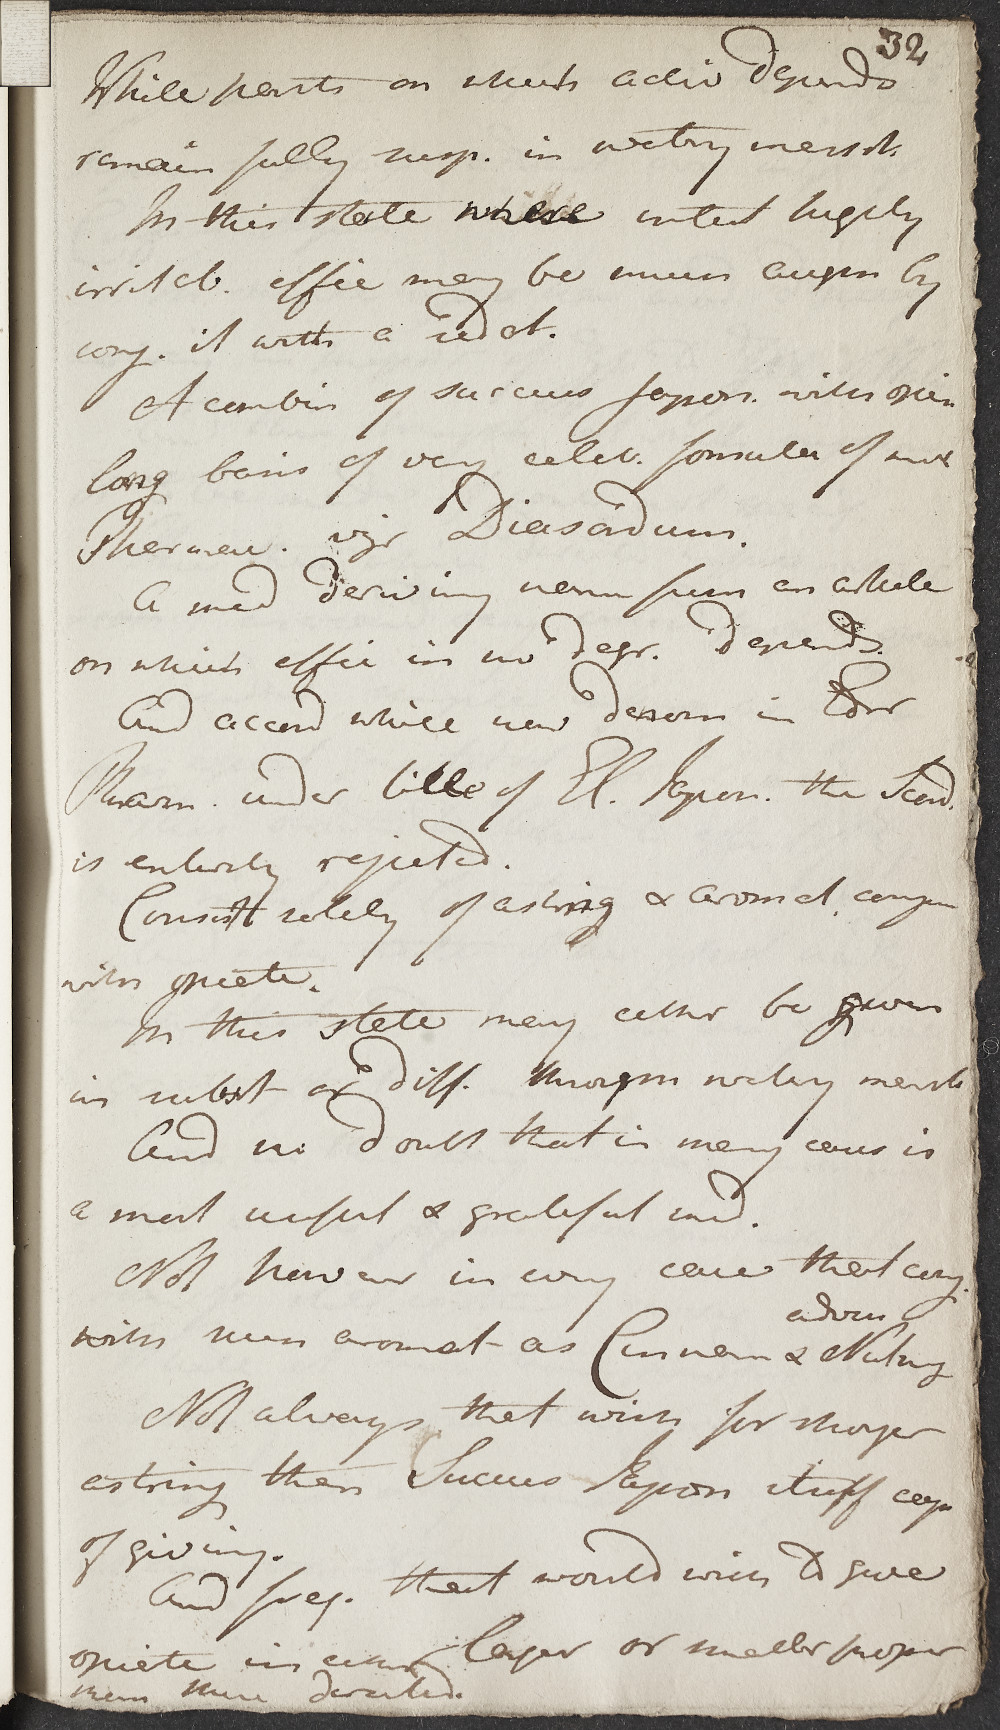 32
While parts on which activ depends
remain fully susp. in watery menst.
In this state where intest highly
irritab. effic may be much augm by
conj. it with a sedat.
A combin of succus Japon. with opium
long basis of very celeb. formula of most
Pharmac. viz Diascordium.
A med deriving name from an article
on which effic in no degr. depends.
And accord while now described in Edin
Pharm. under title of El. Japon. the Scord.
is entirely rejected.
Consist solely of astring & aromat. conjun
with opiate.
In this state may either be given
in subst or diff. through watery menst
And no doubt that in many cases is
a most useful & grateful med.
Not however in every case that conj.
advis
with warm aromat as Cinnam & Nutmeg
Not always that wish for stronger
astring than Succus Japon itself cap
of giving.
And freq. that would wish to give
opiate in either larger or smaller propor
than there directed.